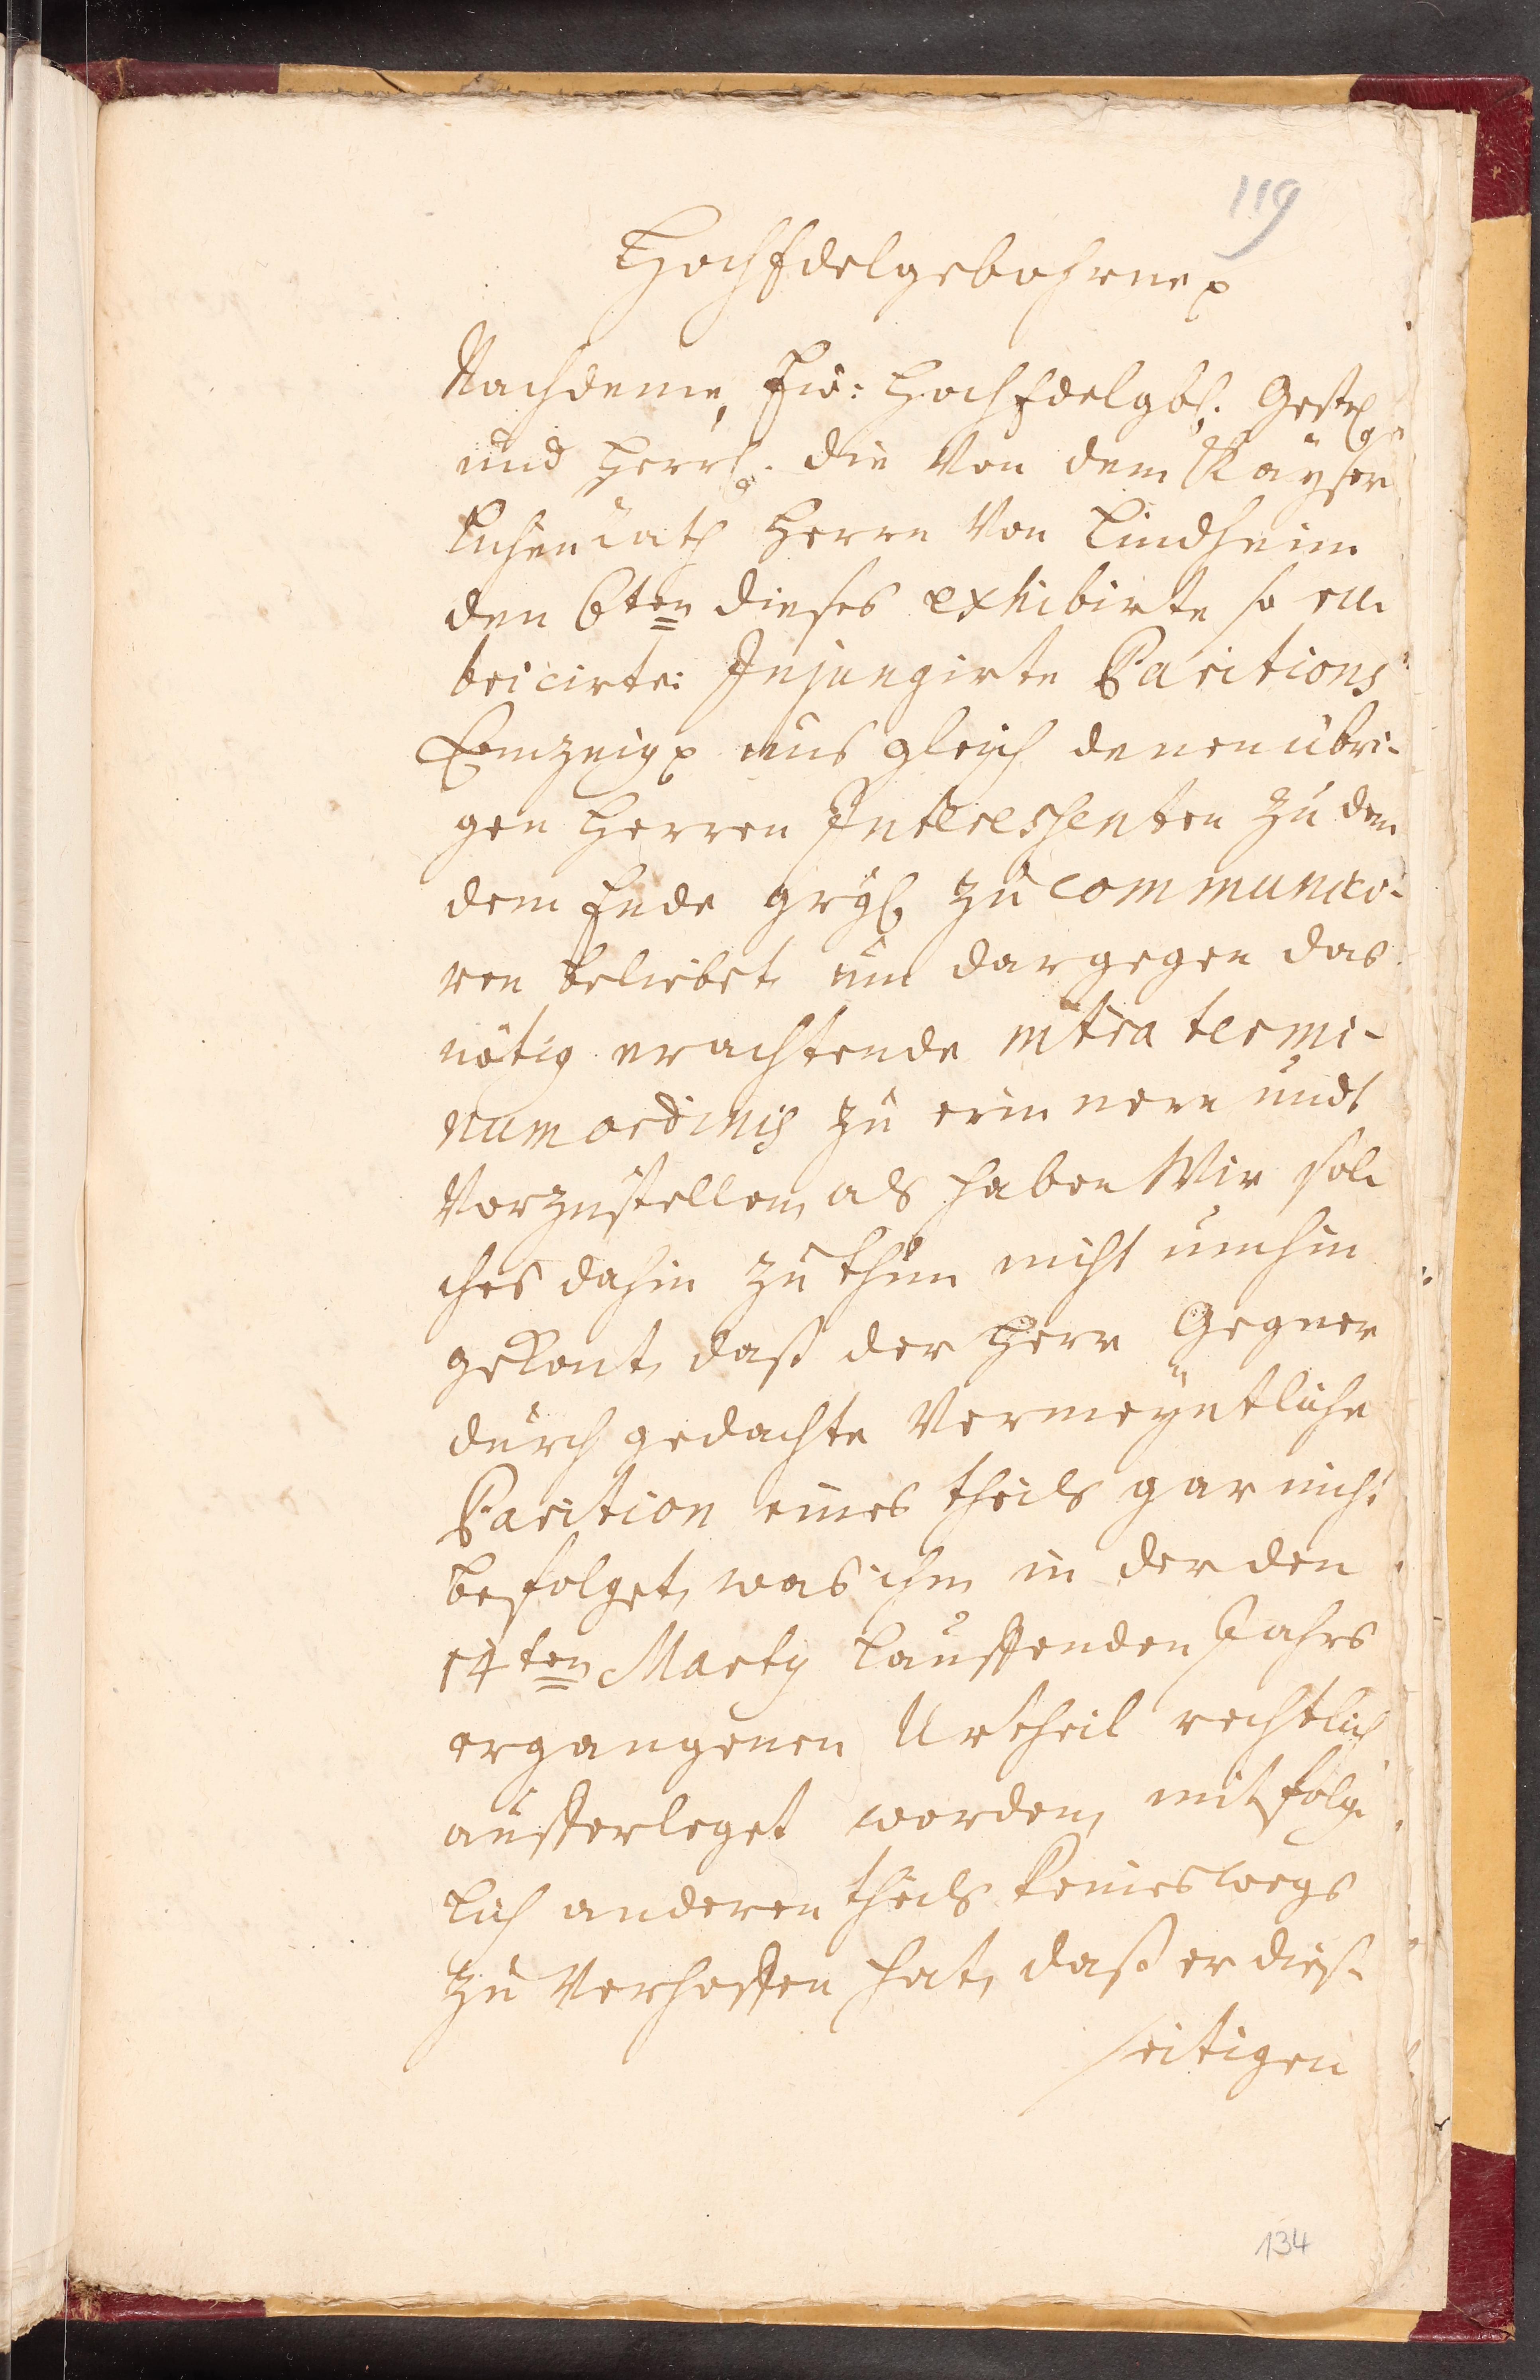 119
HochEdelgebohrne p
Nachdeme, Ew: HochEdelgbl. Gestr.
und Herrl. die Von dem Kayser
lichen rath Herrn Von Lindheim
den 6ten dieses exhibirte so ru-
bricirte: Injungirte Paritions
Anzeig p uns gleich denen übri-
gen Herren Interessenten zu dem
dem Ende grgl zu communici-
ren beliebet, um dargegen das
nötig erachtende intra termi-
num ordinis zu erinnern undt
Vorzustellen, als haben Wir sol-
ches dahin zu thun nicht umhin
gekont, daß der Herr Gegner
durch gedachte Vermeyntliche
Parition eines theils gar nicht
befolget, was ihm in der den
14ten Marty lauffenden Jahrs
ergangenen Urtheil rechtlich
aufferleget worden, mitfolg-
lich anderen theils keineswegs
zu Verhoffen hat, daß er dies-
seitigen
134